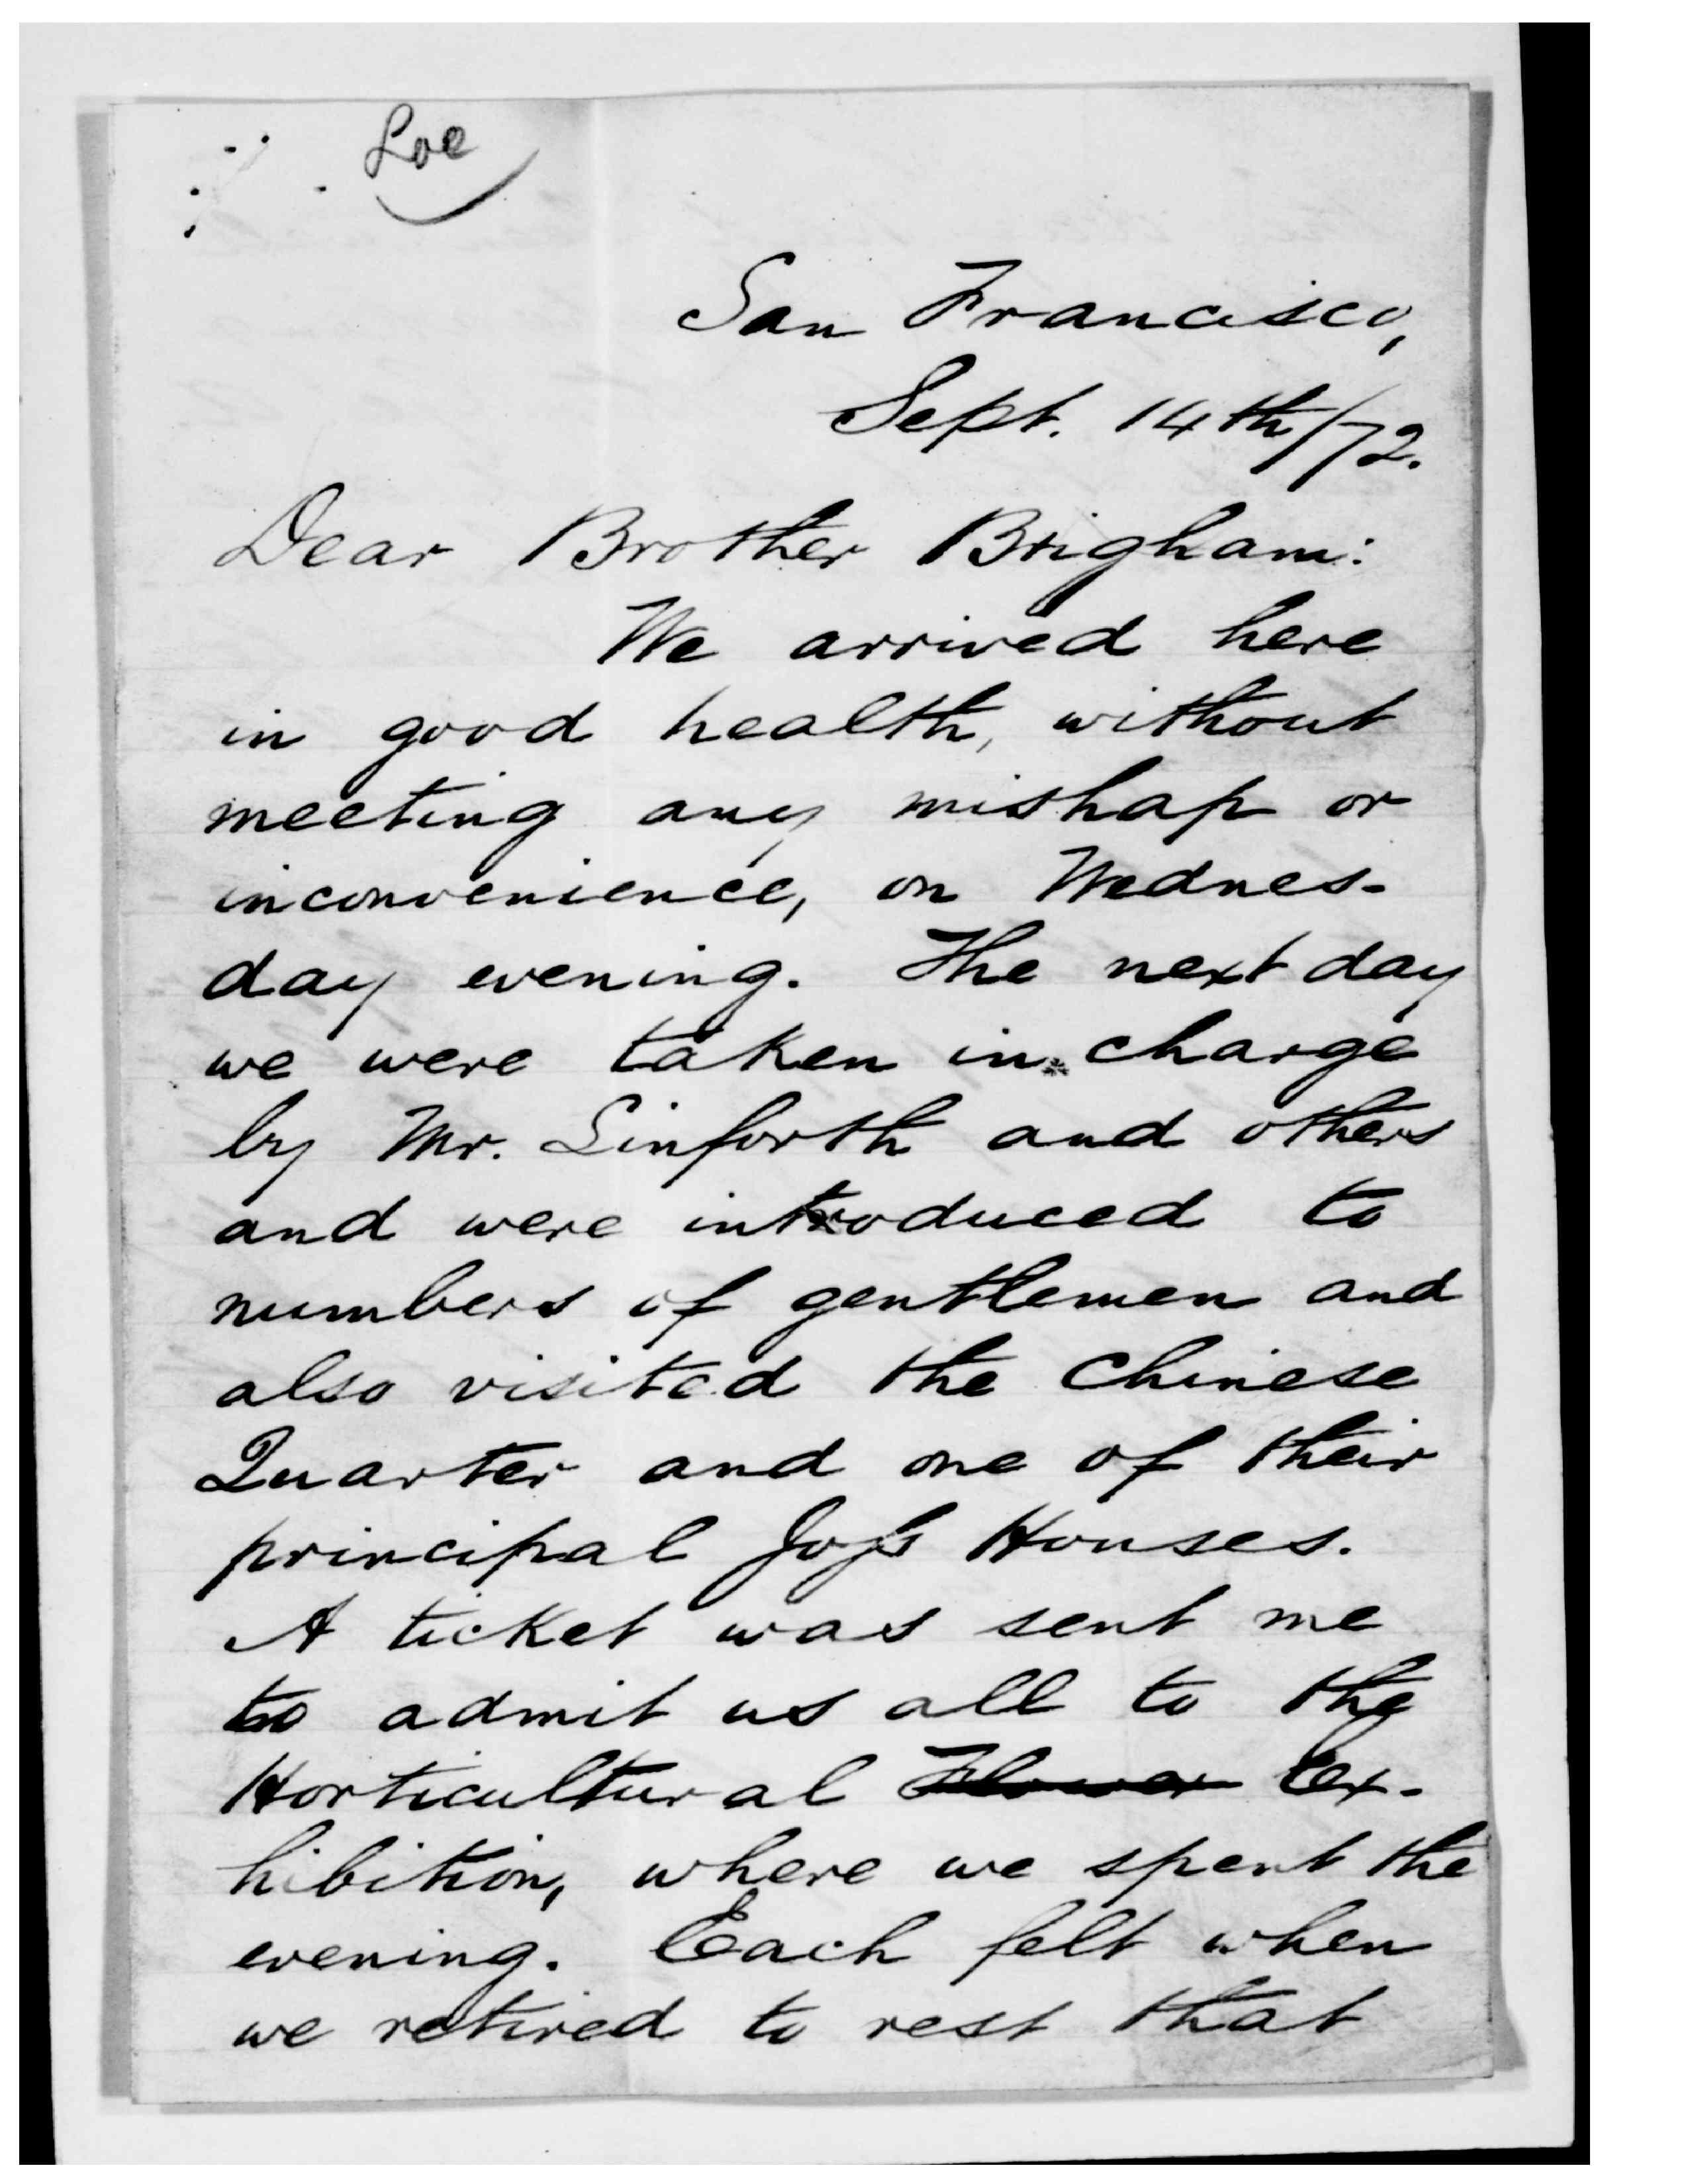 Loe
San Francisco,
Sept. 14th/72.
Dear Brother Brigham:
We arrived here
in good health, without
meeting any mishap or
inconvenience, on Wednes-
day evening. The next day
we were taken in charge
by Mr. Linforth and others
and were introduced to
numbers of gentlemen and
also visited the Chinese
Quarter and one of their
principal Joss Houses.
A ticket was sent me
to admit us all to the
Horticultural Flower Ex-
hibition, where we spent the
evening. Each felt when
we retired to rest that